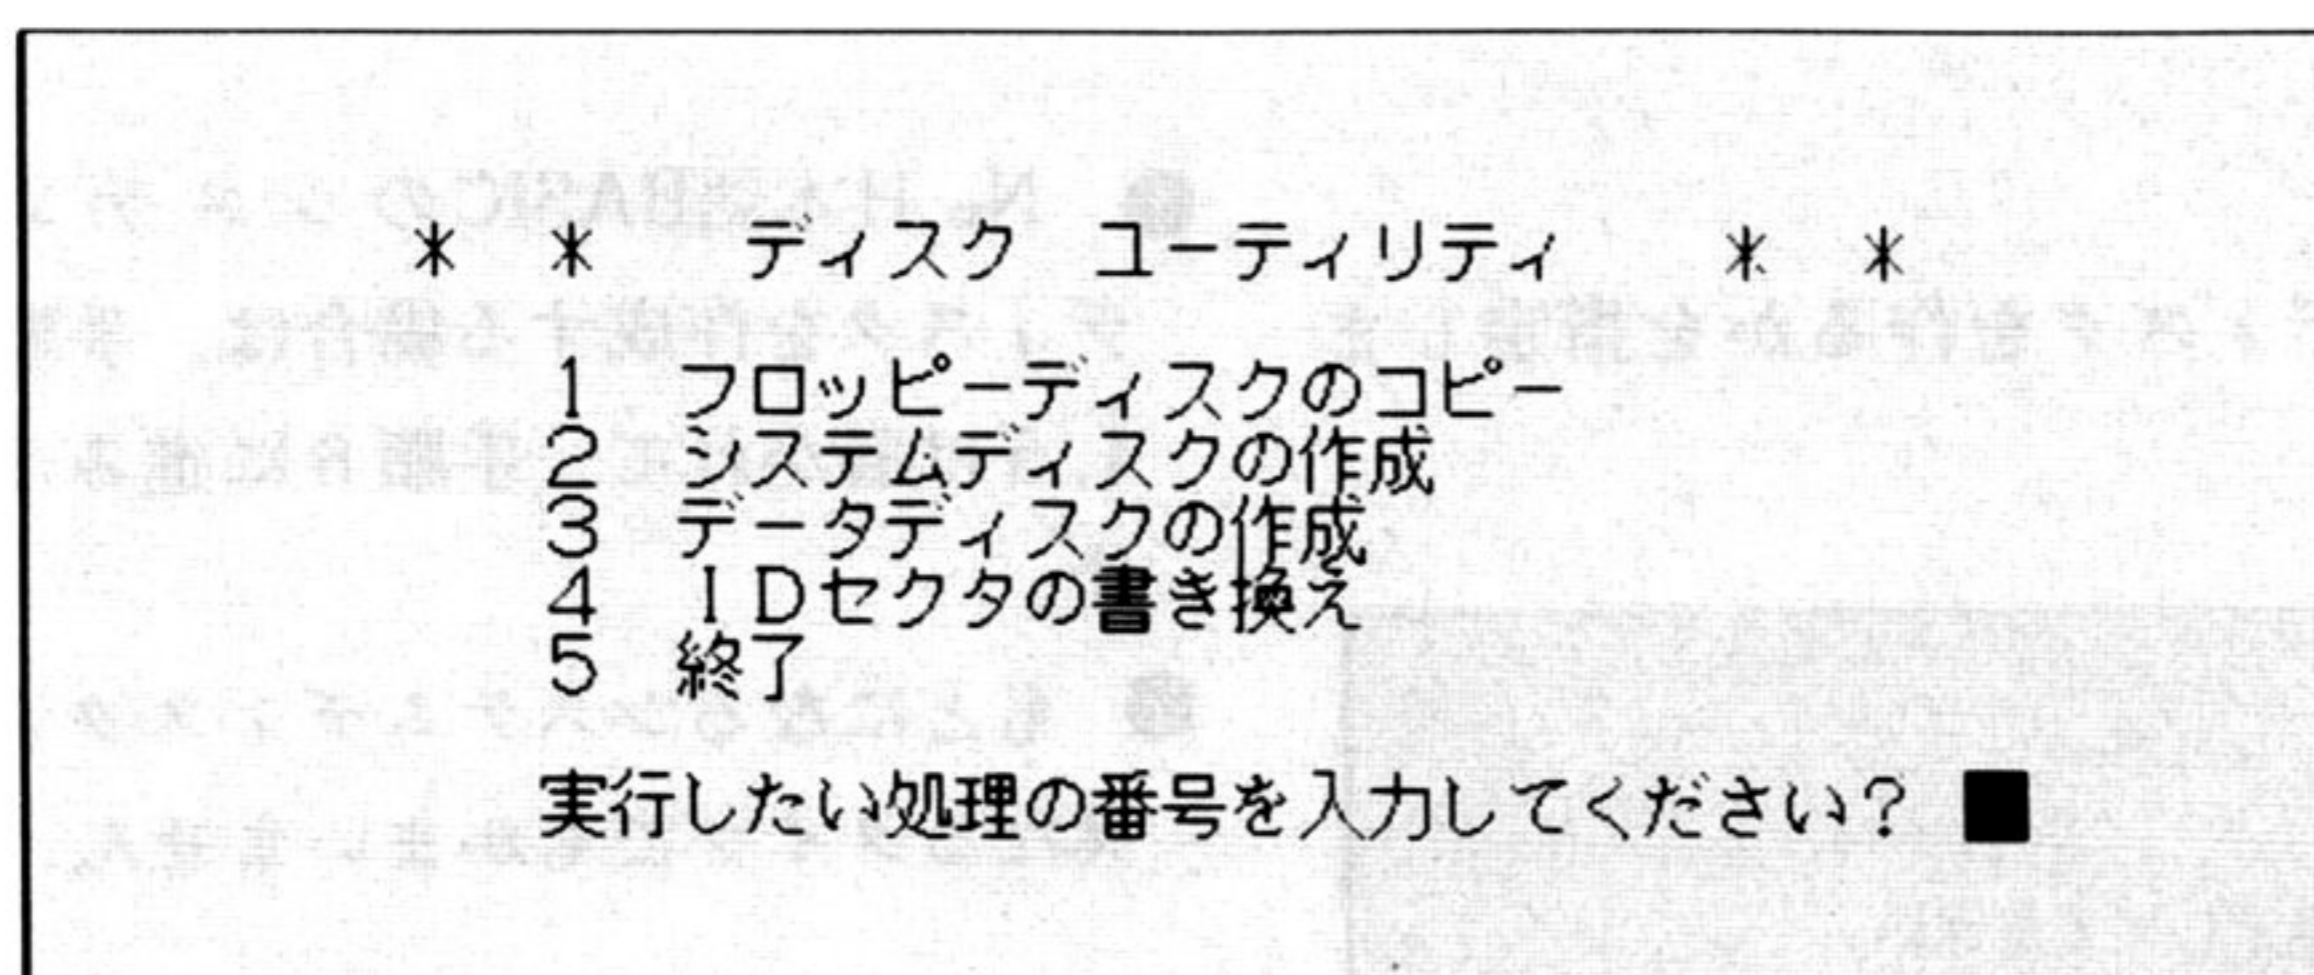 * *  ディスク ユーティリティ  * *
1 フロッピーディスクのコピー
2 システムディスクの作成
3 データディスクの作成
4 IDセクタの書き換え
5 終了
実行したい処理の番号を入力してください? ■